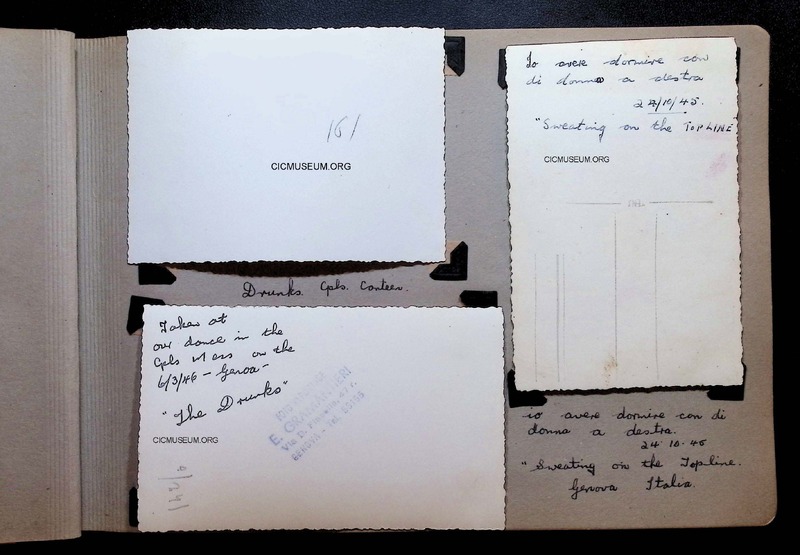 161
CICMUSEUM.ORG
Drunks. Cpls. Canteen.
Taken at
our dance in the
Cpls Mess on the
6/3/46 - Genoa -
"The Drunks"
CICMUSEUM.ORG
E.
Via
GENOVA - Tel.
Io avere dormire con
di donna a destra
24/10/45.
"Sweating on the TOPLINE"
CICMUSEUM.ORG
io avere dormire con di
donna a destra.
24.10.45
"Sweating on the Topline.
Genova Italia.